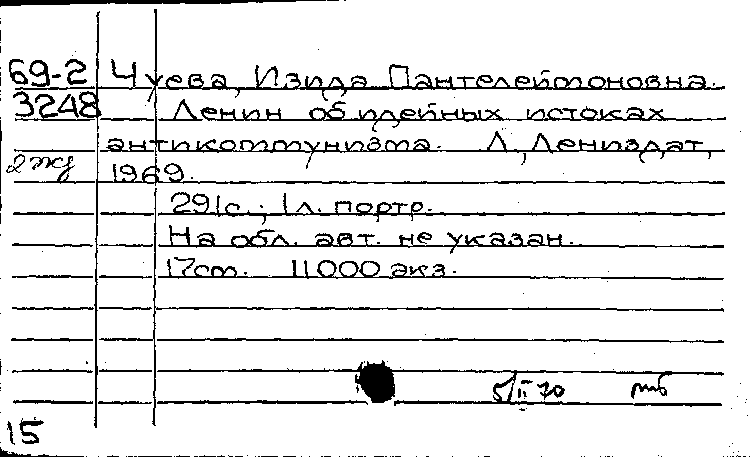 69-2 Чуева, Изида Пантелеймоновна.
3248 Ленин об идейных истоках
антикоммунизма. Л., Лениздат,
1969.
291с.; 1л. портр.
На обл. авт. не указан.
17см. 11000 экз.
5/II 70
15